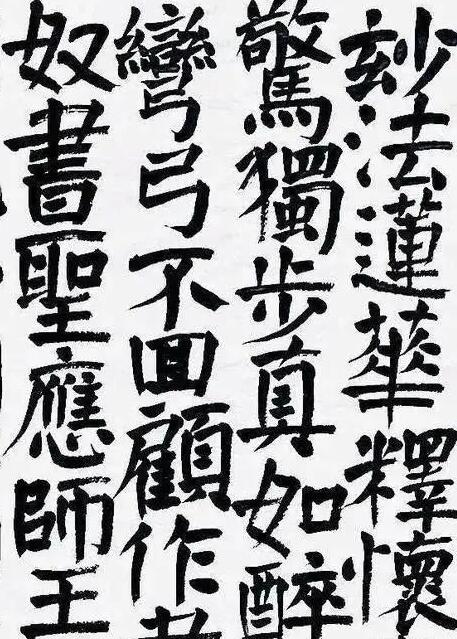 玅法蓮華釋懷
驚獨步真如醉
彎弓不回顧作
奴書聖應師王